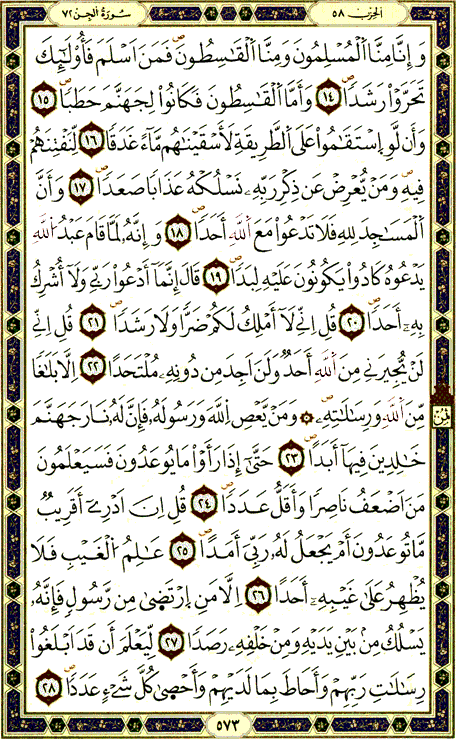 الحزب ٥٨
سورة الجن ٧٢
وَإِنَّا مِنَّا اَلْمُسْلِمُونَ وَمِنَّا اَلْقَٰسِطُونَ فَمَنَ اَسْلَمَ فَأُوْلَٰٓئِكَ
تَحَرَّوْاْ رَشَدًا ١٤ وَأَمَّا اَلْقَٰسِطُونَ فَكَانُواْ لِجَهَنَّمَ حَطَبًا ١٥
وَأَن لَّوِ اِسْتَقَٰمُواْ عَلَى اَلطَّرِيقَةِ لَأَسْقَيْنَٰهُم مَّآءً غَدَقًا ١٦ لِّنَفْتِنَهُمْ
فِيهِ وَمَنْ يُّعْرِضْ عَن ذِكْرِ رَبِّهِۦ نَسْلُكْهُ عَذَابًا صَعَدًا ١٧ وَأَنَّ
اَلْمَسَٰجِدَ لِلهِ فَلَا تَدْعُواْ مَعَ اَللَّهِ أَحَدًا ١٨ وَإِنَّهُۥ لَمَّا قَامَ عَبْدُ اُللَّهِ
يَدْعُوهُ كَادُواْ يَكُونُونَ عَلَيْهِ لِبَدًا ١٩ قَالَ إِنَّمَآ أَدْعُواْ رَبِّي وَلَآ أُشْرِكُ
بِهِۦٓ أَحَدًا ٢٠ قُلِ اِنِّي لَآ أَمْلِكُ لَكُمْ ضَرًّا وَلَا رَشَدًا ٢١ قُلِ اِنِّي
لَنْ يُّجِيرَنِي مِنَ اَللَّهِ أَحَدٌ وَلَنَ اَجِدَ مِن دُونِهِۦ مُلْتَحَدًا ٢٢ اِلَّا بَلَٰغًا
مِّنَ اَللَّهِ وَرِسَٰلَٰتِهِۦ ۞ وَمَنْ يَّعْصِ اِللَّهَ وَرَسُولَهُۥ فَإِنَّ لَهُۥ نَارَ جَهَنَّمَ
خَٰلِدِينَ فِيهَآ أَبَدًا ٢٣ حَتَّىٰٓ إِذَا رَأَوْاْ مَا يُوعَدُونَ فَسَيَعْلَمُونَ
مَنَ اَضْعَفُ نَاصِرًا وَأَقَلُّ عَدَدًا ٢٤ قُلِ اِنَ اَدْرِےٓ أَقَرِيبٌ
مَّا تُوعَدُونَ أَمْ يَجْعَلُ لَهُۥ رَبِّيَ أَمَدًا ٢٥ عَٰلِمُ اُلْغَيْبِ فَلَا
يُظْهِرُ عَلَىٰ غَيْبِهِۦٓ أَحَدًا ٢٦ اِلَّا مَنِ اِرْتَضَىٰ مِن رَّسُولٍ فَإِنَّهُۥ
يَسْلُكُ مِنۢ بَيْنِ يَدَيْهِ وَمِنْ خَلْفِهِۦ رَصَدًا ٢٧ لِّيَعْلَمَ أَن قَدَ اَبْلَغُواْ
رِسَٰلَٰتِ رَبِّهِمْ وَأَحَاطَ بِمَا لَدَيْهِمْ وَأَحْصَىٰ كُلَّ شَےْءٍ عَدَدًا ٢٨
ثمن
٥٧٣